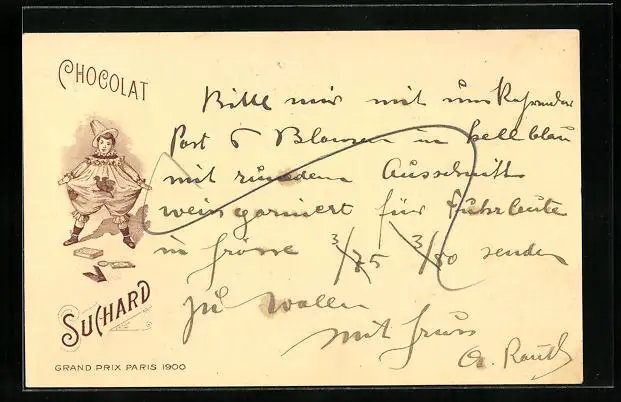 CHOCOLAT
Bitte mir mit
Post 6 Blousen in hellblau
mit rundem Ausschnitt
weiss garniert für Fuhrleute
in Grösse 3/75 3/80 senden
zu wollen
mit Gruss
SUCHARD
GRAND PRIX PARIS 1900